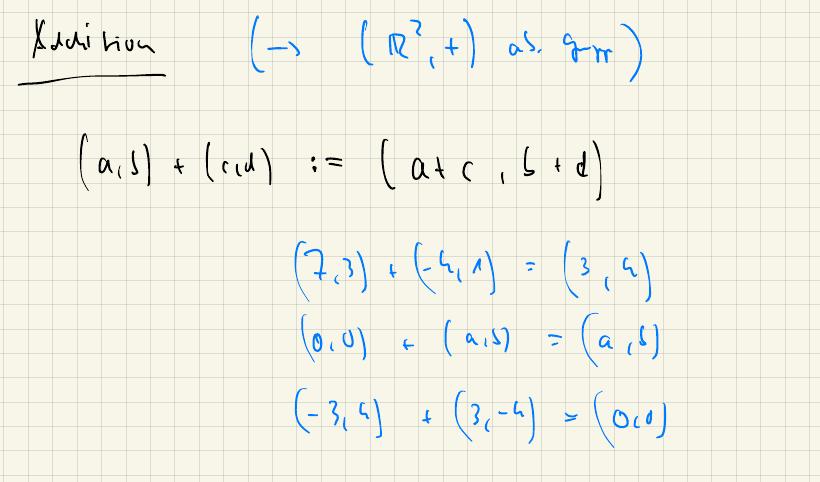 Addition (→ (ℝ², +) ab. grp)
(a,b) + (c,d) := (a+c, b+d)
(7,3) + (-4,1) = (3,4)
(0,0) + (a,b) = (a,b)
(-3,4) + (3,-4) = (0,0)